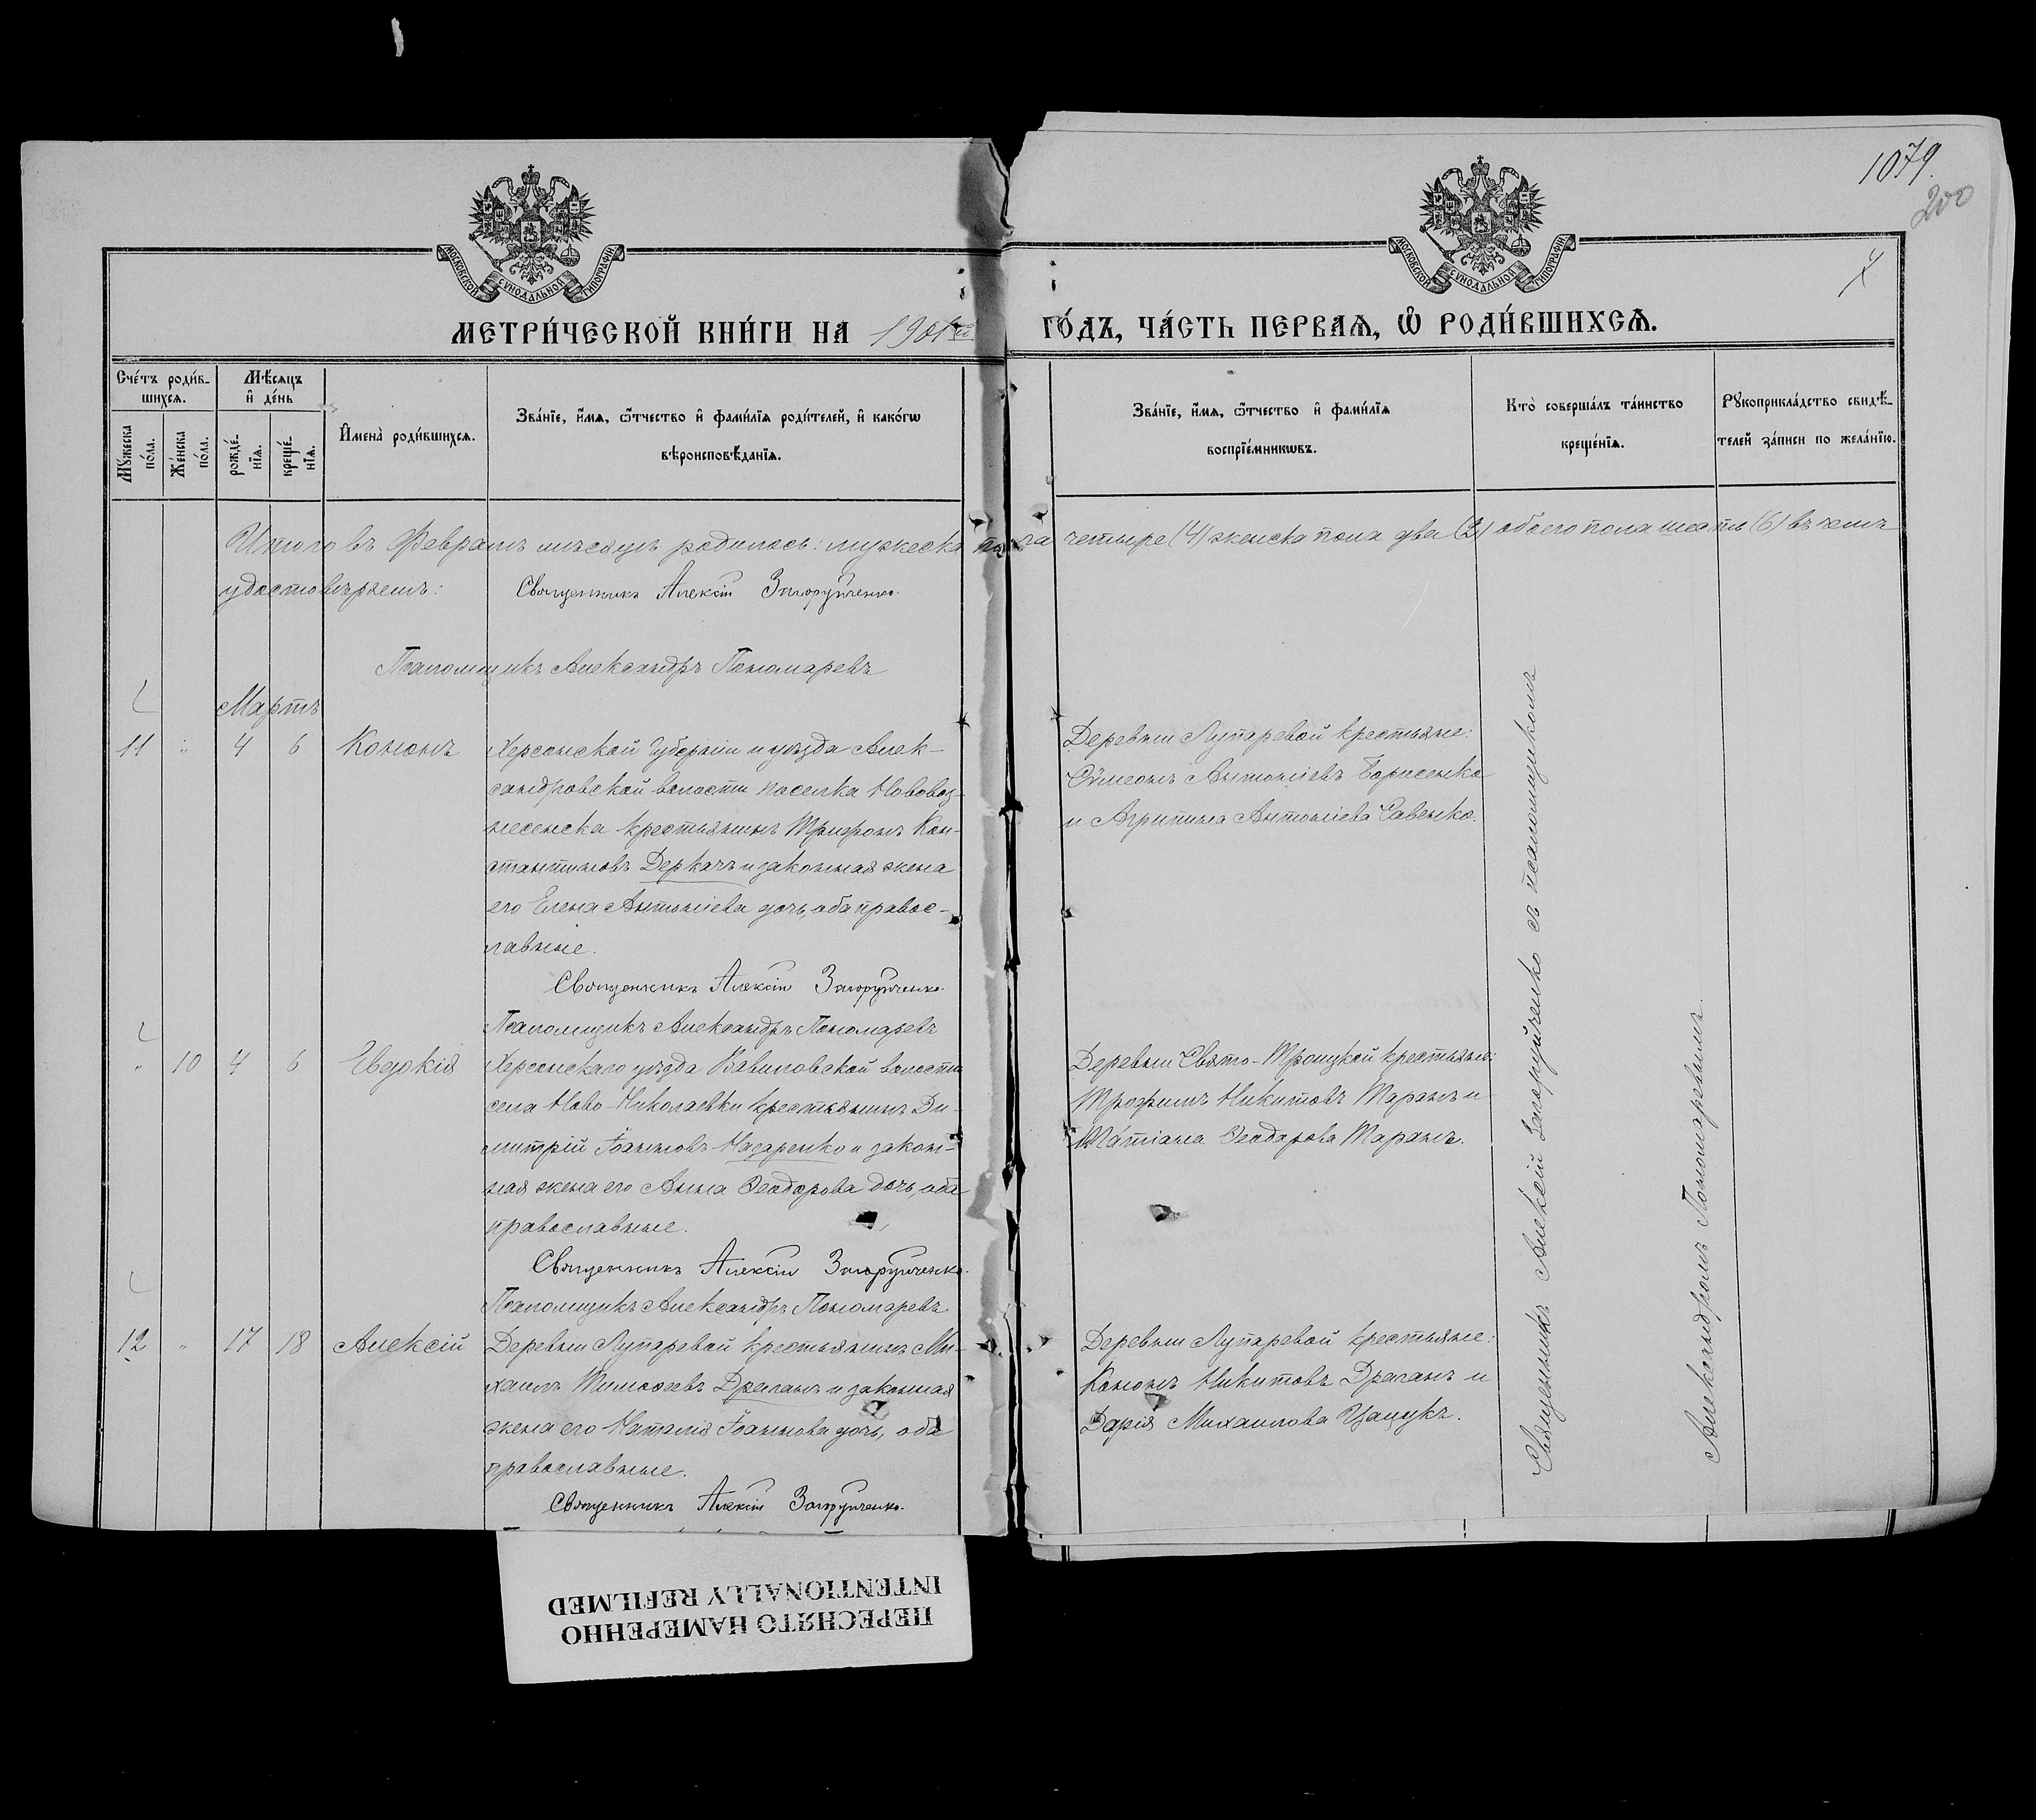 1079.
200
МОСКОВСКОЙ СѴНОДАЛЬНОЙ ТИПОГРАФІИ
МОСКОВСКОЙ СѴНОДАЛЬНОЙ ТИПОГРАФІИ
МЕТРИ́ЧЕСКОЙ КНИ́ГИ НА 1901й
ГО́ДЪ, ЧА́СТЬ ПЕРВАѦ, Ѽ РОДИ́ВШИХСѦ.
Сче́тъ роди́в-
шихсѧ.
Мѣ́сѧцъ
и҆ де́нь
Мꙋ́жеска
по́ла.
Же́нска
по́ла.
рожде́-
нїѧ.
креще́-
нїѧ.
И҆мена̀ роди́вшихсѧ.
Зва́нїе, и҆́мѧ, ѻ҆́тчество и҆ фами́лїѧ роди́телей, и҆ како́гѡ
вѣроисповѣ́данїѧ.
Зва́нїе, и҆́мѧ, ѻ҆́тчество и҆ фами́лїѧ
воспрїе́мникѡвъ.
Кто̀ соверша́лъ та́инство
креще́нїѧ.
Рꙋкоприкла́дство свидѣ́-
телей за́писи по жела́нїю.
Итого въ Февралѣ мѣсяцѣ родилось: мужеска пола четыре (4) женска пола два (2) обоего пола шесть (6) въ чемъ
удостовѣряемъ: Священникъ Алексій Загоруйченко.
Псаломщикъ Александръ Пономаревъ
Мартъ
11 " 4 6 Кононъ
Херсонской Губерніи и уѣзда Алек-
сандровской волости поселка Нововоз-
несенска крестьянинъ Трифонъ Кон-
стантиновъ Деркачъ и законная жена
его Елена Антоніева дочь, оба правос-
лавные.
Священникъ Алексій Загоруйченко.
Псаломщикъ Александръ Пономаревъ
Деревни Лупаревой крестьяне:
Сѵмеонъ Антоніевъ Борисенко
и Агрипина Антоніева Савенко.
" 10 4 6 Евдокія
Херсонскаго уѣзда Вавиловской волости
села Ново-Николаевки крестьянинъ Ди-
митрій Іоанновъ Назаренко и закон-
ная жена его Анна Ѳеодорова дочь, оба
православные.
Священникъ Алексій Загоруйченко.
Псаломщикъ Александръ Пономаревъ.
Деревни Свято-Троицкой крестьяне:
Трофимъ Никитовъ Таранъ и
Татіана Ѳеодорова Таранъ.
12 " 17 18 Алексій
Деревни Лупаревой крестьянинъ Ми-
хаилъ Тимоѳеевъ Драганъ и законная
жена его Наталія Іоаннова дочь, оба
православные.
Священникъ Алексій Загоруйченко.
Деревни Лупаревой крестьяне:
Кононъ Никитовъ Драганъ и
Дарія Михаилова Цацукъ.
Священникъ Алексій Загоруйченко съ псаломщикомъ
Александромъ Пономаревымъ.
ПЕРЕСНЯТО НАМЕРЕННО
INTENTIONALLY REFILMED